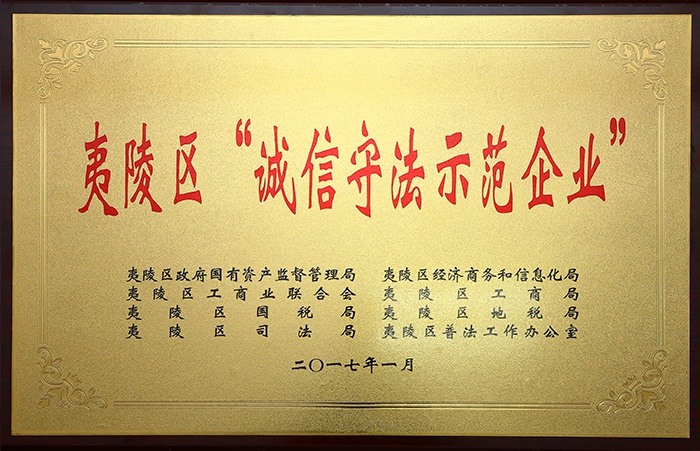 夷陵区“诚信守法示范企业”
夷陵区政府国有资产监督管理局 夷陵区经济商务和信息化局
夷陵区工商业联合会 夷陵区工商局
夷陵区国税局 夷陵区地税局
夷陵区司法局 夷陵区普法工作办公室
二〇一七年一月